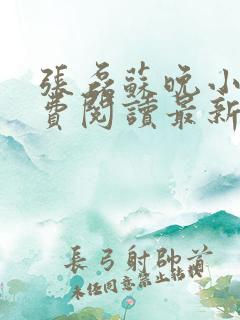 張磊蘇晚小
費閱讀最新
長弓射帥首
未经同意禁止转载